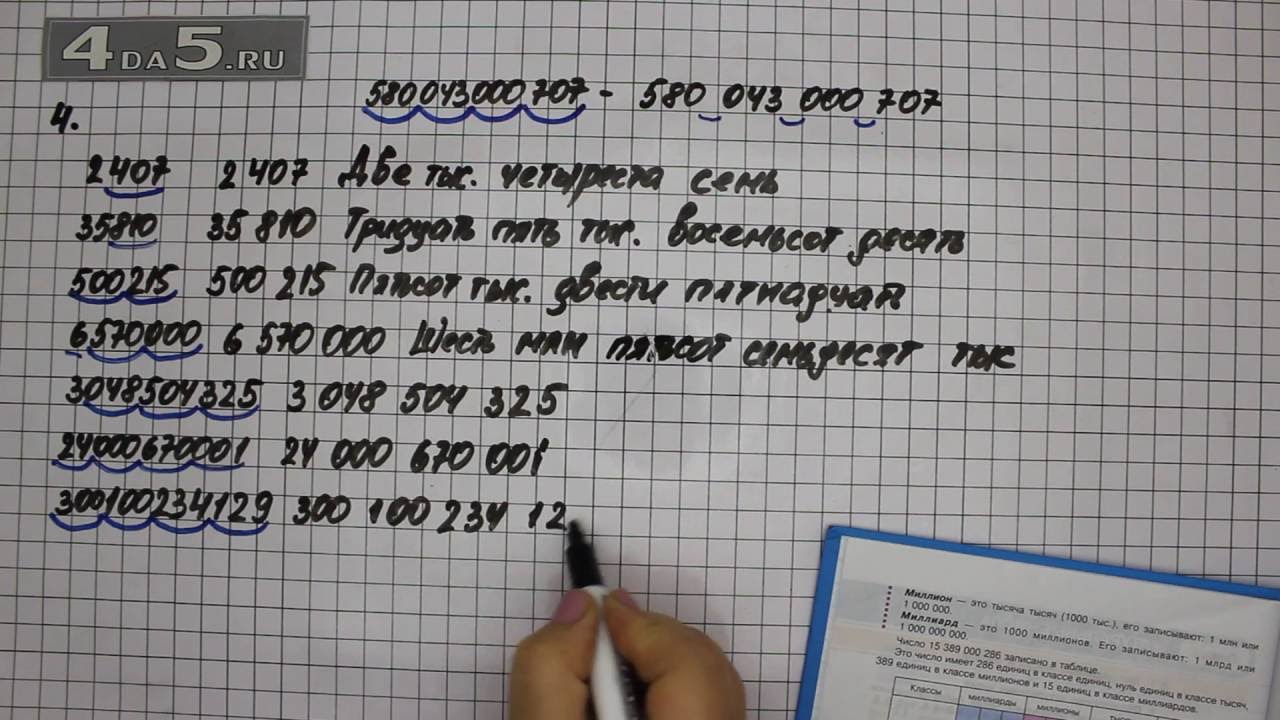 4DA5.RU
580043000707 - 580 043 000 707
4.
2407 2 407 Две тыс. четыреста семь
35810 35 810 Тридцать пять тыс. восемьсот десять
500215 500 215 Пятьсот тыс. двести пятнадцать
6570000 6 570 000 Шесть млн пятьсот семьдесят тыс
3048504325 3 048 504 325
24000670001 24 000 670 001
300100234129 300 100 234 12
Миллион — это тысяча тысяч (1000 тыс.), его записывают: 1 млн или
1 000 000.
Миллиард — это 1000 миллионов. Его записывают: 1 млрд или
1 000 000 000.
Число 15 389 000 286 записано в таблице.
Это число имеет 286 единиц в классе единиц, нуль единиц в классе тысяч,
389 единиц в классе миллионов и 15 единиц в классе миллиардов.
Классы миллиарды миллионы